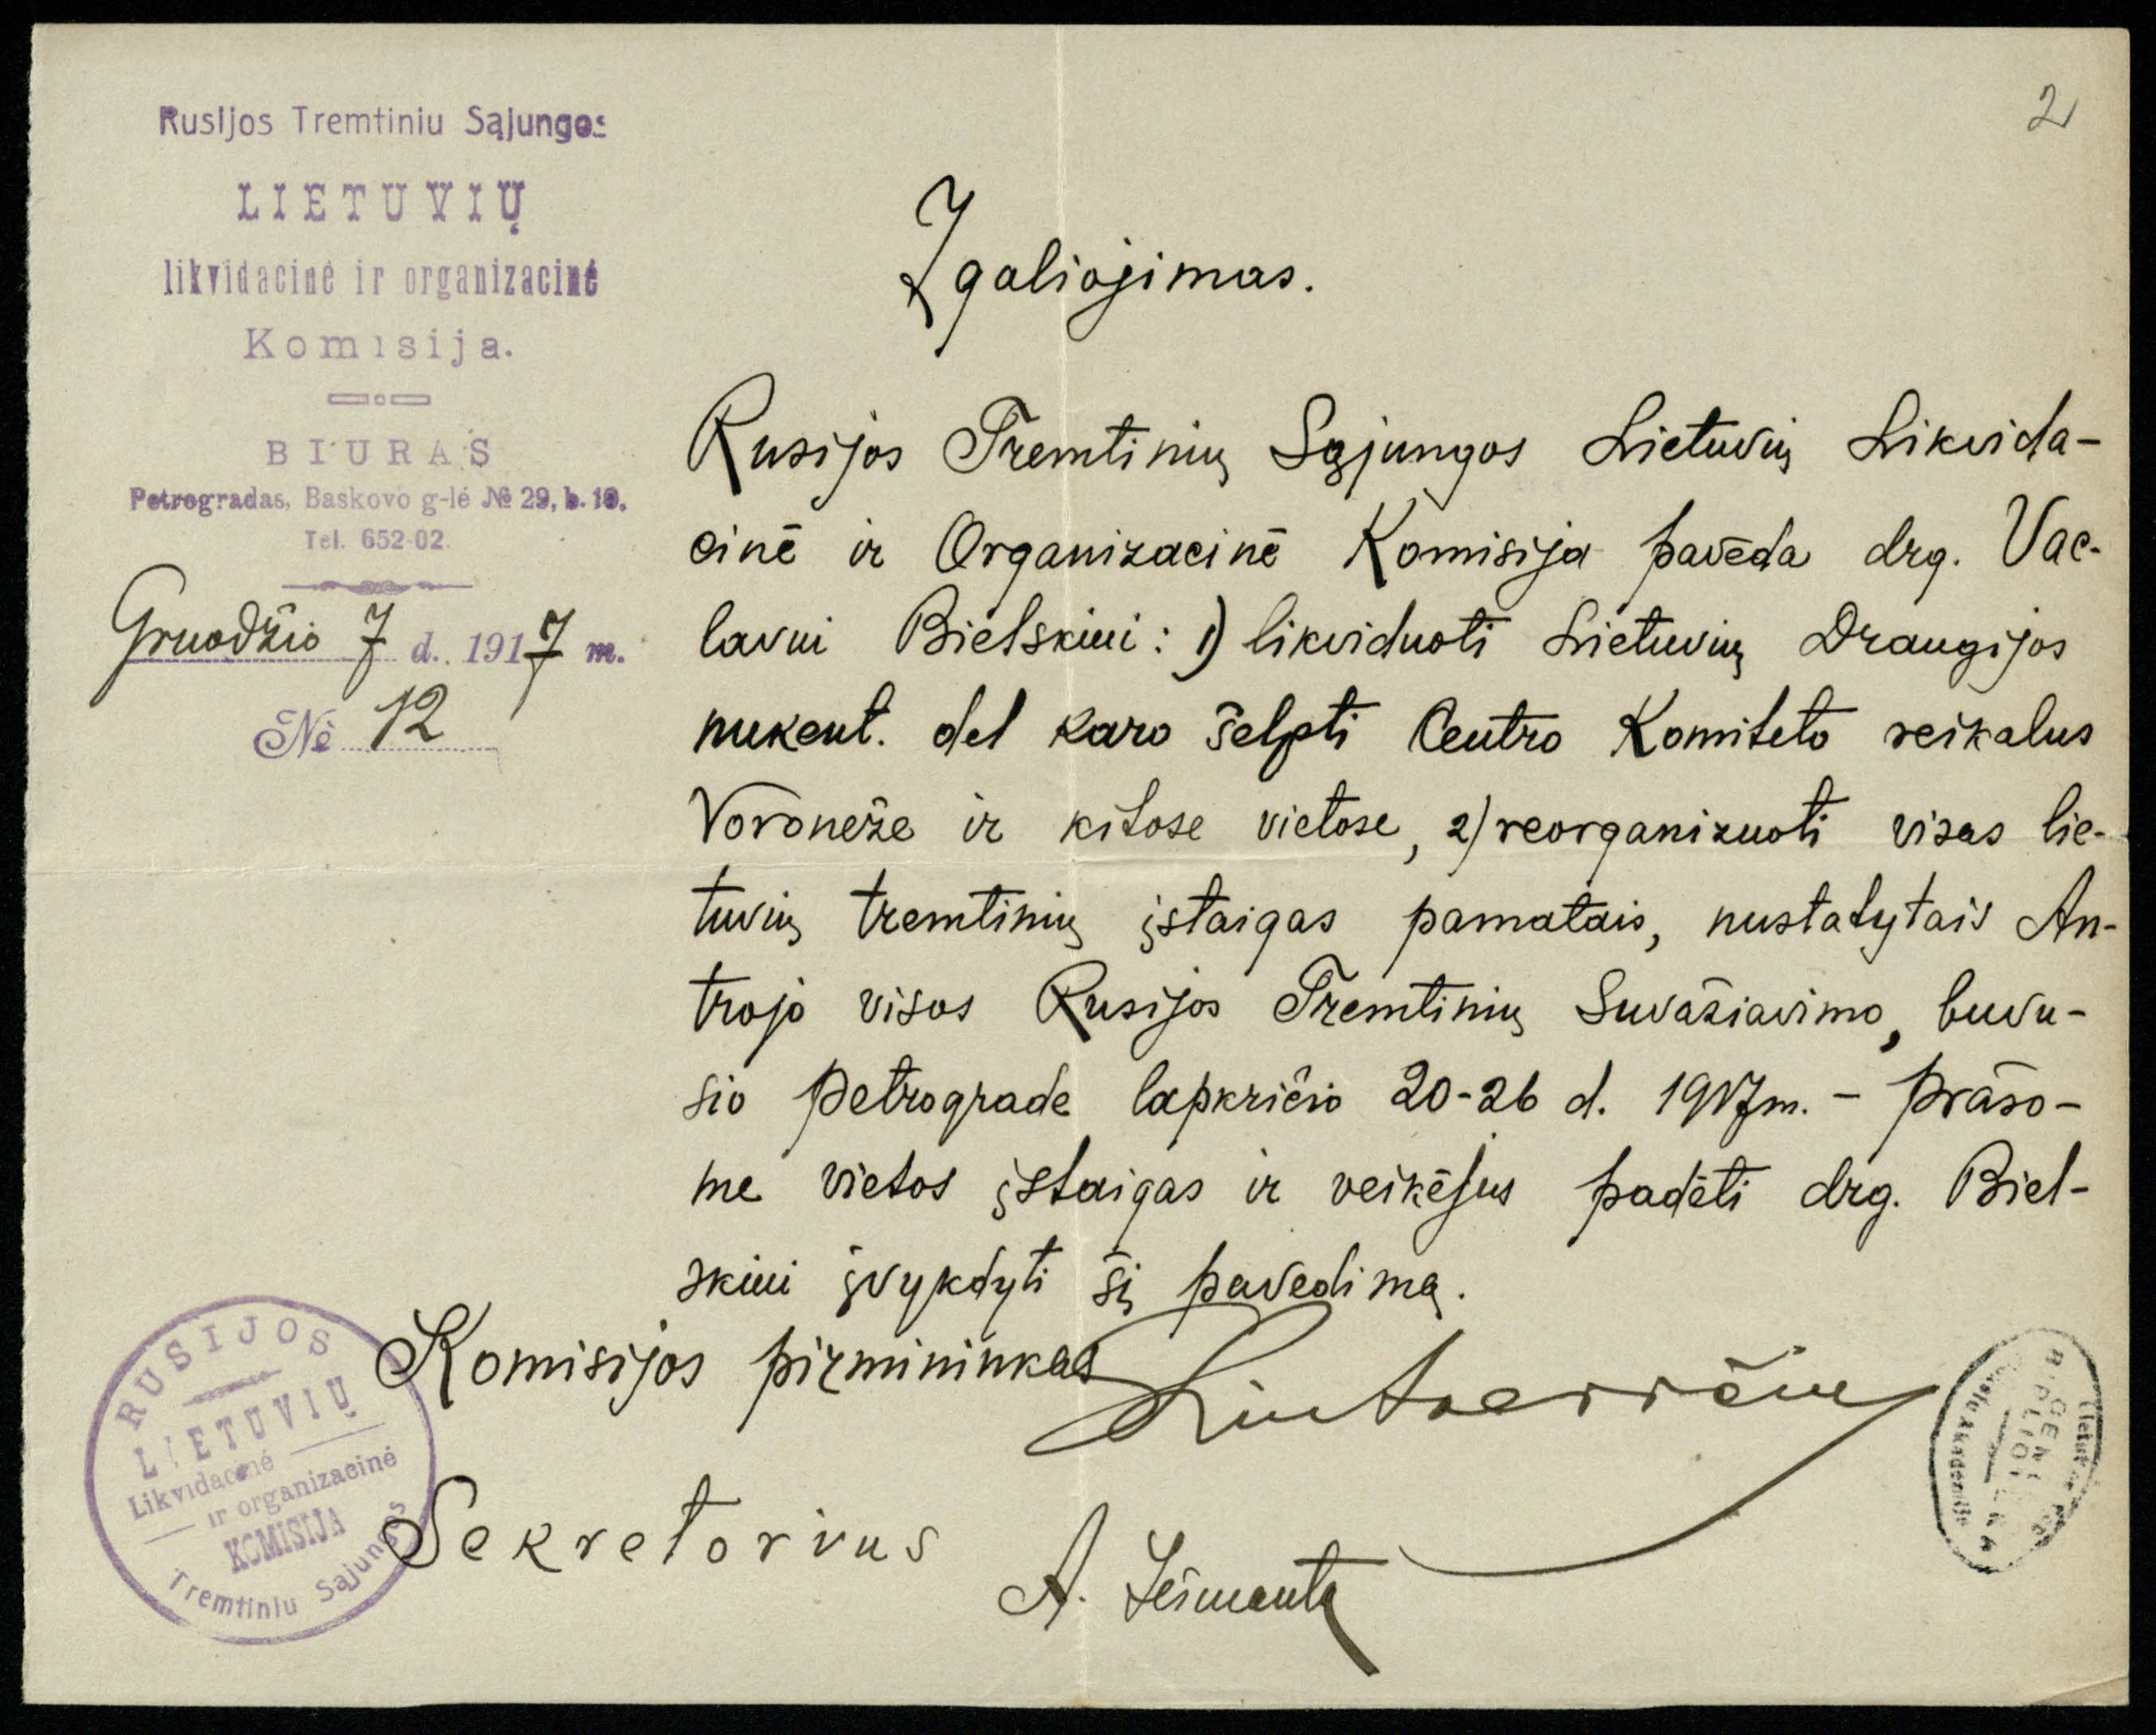 Rusijos Tremtiniu Sąjungos
LIETUVIŲ
likvidacinė ir organizacinė
Komisija.
BIURAS
Petrogradas, Baskovo g-lė № 29, b. 10.
Tel. 652-02.
Gruodžio 7 d. 1917 m.
№ 12
2
Įgaliojimas.
Rusijos Tremtinių Sąjungos Lietuvių Likvida-
cinė ir Organizacinė Komisija pavėda drg. Vac-
lavui Bielskiui: 1) likviduoti Lietuvių Draugijos
nukent. del karo šelpti Centro Komiteto reikalus
Voroneže ir kitose vietose, 2) reorganizuoti visas lie-
tuvių tremtinių įstaigas pamatais, nustatytais An-
trojo visos Rusijos Tremtinių Suvažiavimo, buvu-
sio Petrograde lapkričio 20-26 d. 1917 m. - prašo-
me vietos įstaigas ir veikėjus padėti drg. Biel-
skiui įvykdyti šį pavedimą.
Komisijos pirmininkas
Sekretorius A.
RUSIJOS
LIETUVIŲ
Likvidacinė
ir organizacinė
KOMISIJA
Tremtiniu Sąjungos